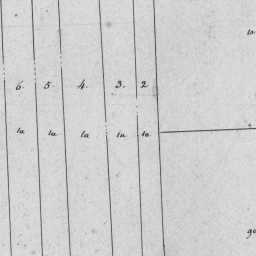 6. 5. 4. 3. 2
la la la la la